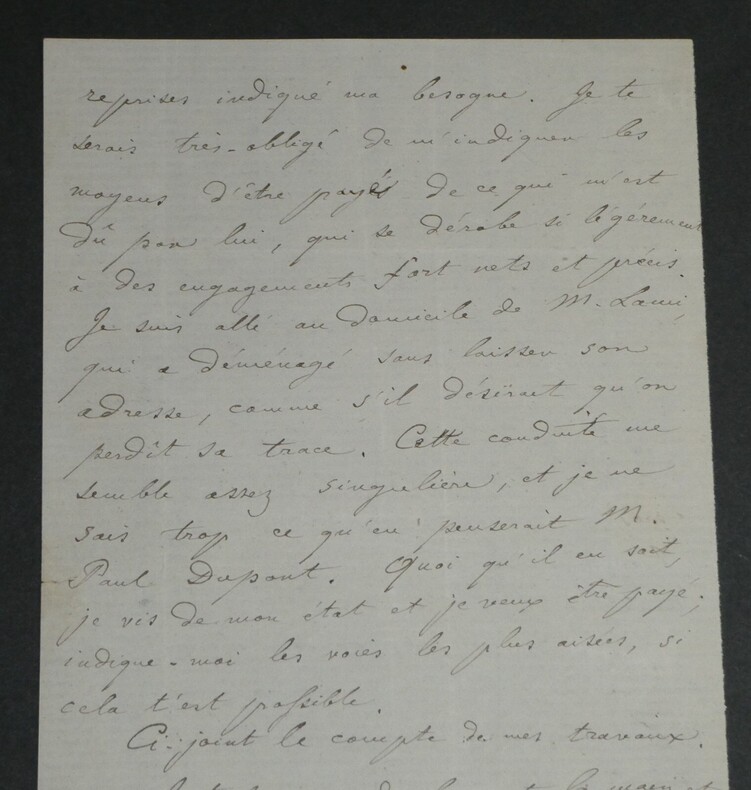 reprises indiqué ma besogne. Je te
serais très-obligé de m'indiquer les
moyens d'être payé de ce qui m'est
dû par lui, qui se dérobe si légèrement
à des engagements fort nets et précis.
Je suis allé au domicile de M. Lami,
qui a déménagé sans laisser son
adresse, comme s'il désirait qu'on
perdît sa trace. Cette conduite me
semble assez singulière, et je ne
sais trop ce qu'en penserait M.
Paul Dupont. Quoi qu'il en soit,
je vis de mon état et je veux être payé;
indique-moi les voies les plus aisées, si
cela t'est possible.
Ci-joint le compte de mes travaux.
la main et